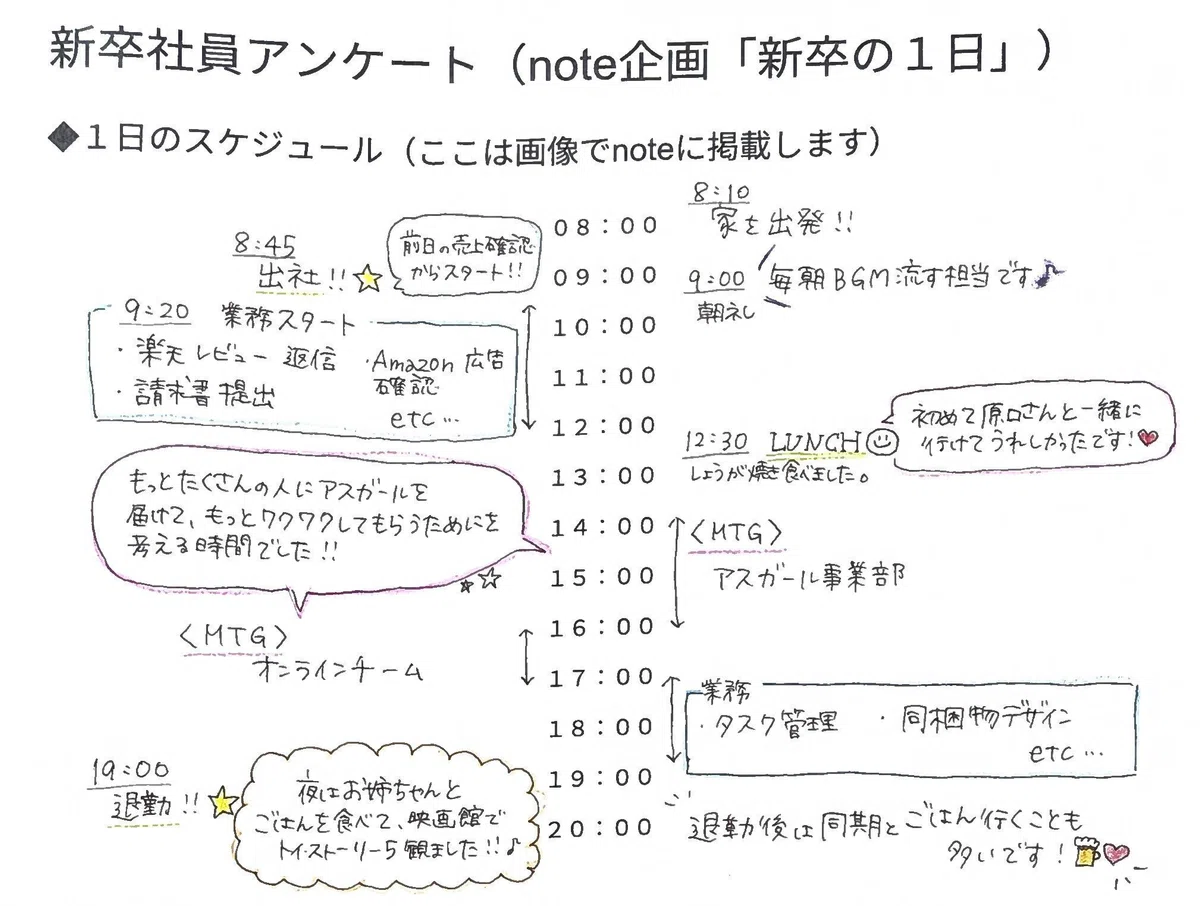 新卒社員アンケート（note企画「新卒の１日」）
◆１日のスケジュール（ここは画像でnoteに掲載します）
08：00
8:10
家を出発!!
8:45
出社!!
前日の売上確認
からスタート!!
09：00
9:00
朝礼
毎朝BGM流す担当です♪
9:20 業務スタート
・楽天レビュー 返信
・Amazon 広告
確認
・請求書 提出
etc…
10：00
11：00
12：00
12:30 LUNCH
しょうが焼き食べました。
初めて原口さんと一緒に
行けてうれしかったです!
13：00
もっとたくさんの人にアスガールを
届けて、もっとワクワクしてもらうためにを
考える時間でした!!
14：00
〈MTG〉
アスガール事業部
15：00
16：00
〈MTG〉
オンラインチーム
17：00
業務
・タスク管理 ・同梱物デザイン
etc…
18：00
19：00
19:00
退勤!!
夜はお姉ちゃんと
ごはんを食べて、映画館で
トイ・ストーリー5観ました!!♪
20：00
退勤後は同期とごはん行くことも
多いです!